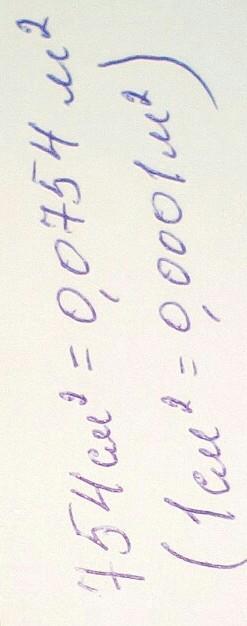 754 см² = 0,0754 м²
(1 см² = 0,0001 м²)